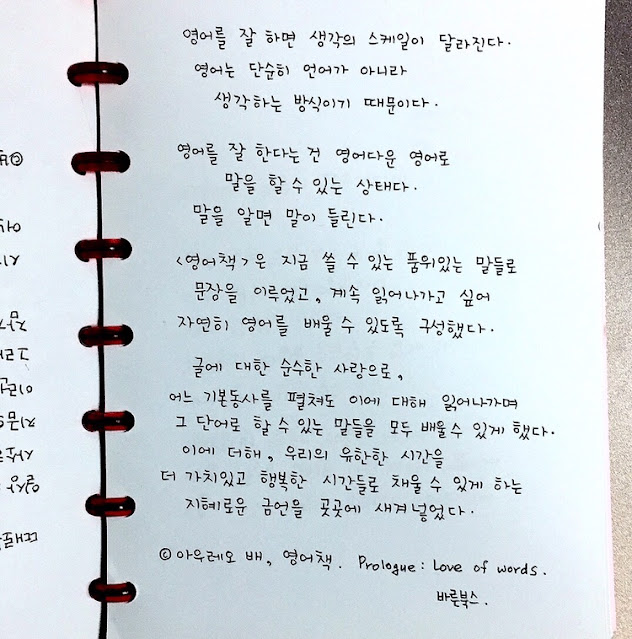 영어를 잘 하면 생각의 스케일이 달라진다.
영어는 단순히 언어가 아니라
생각하는 방식이기 때문이다.
영어를 잘 한다는 건 영어다운 영어로
말을 할 수 있는 상태다.
말을 알면 말이 들린다.
<영어책>은 지금 쓸 수 있는 품위있는 말들로
문장을 이루었고, 계속 읽어나가고 싶어
자연히 영어를 배울 수 있도록 구성했다.
글에 대한 순수한 사랑으로,
어느 기본동사를 펼쳐도 이에 대해 읽어나가며
그 단어로 할 수 있는 말들을 모두 배울 수 있게 했다.
이에 더해, 우리의 유한한 시간을
더 가치있고 행복한 시간들로 채울 수 있게 하는
지혜로운 금언을 곳곳에 새겨넣었다.
©아우레오 배, 영어책. Prologue: Love of words.
바른북스.